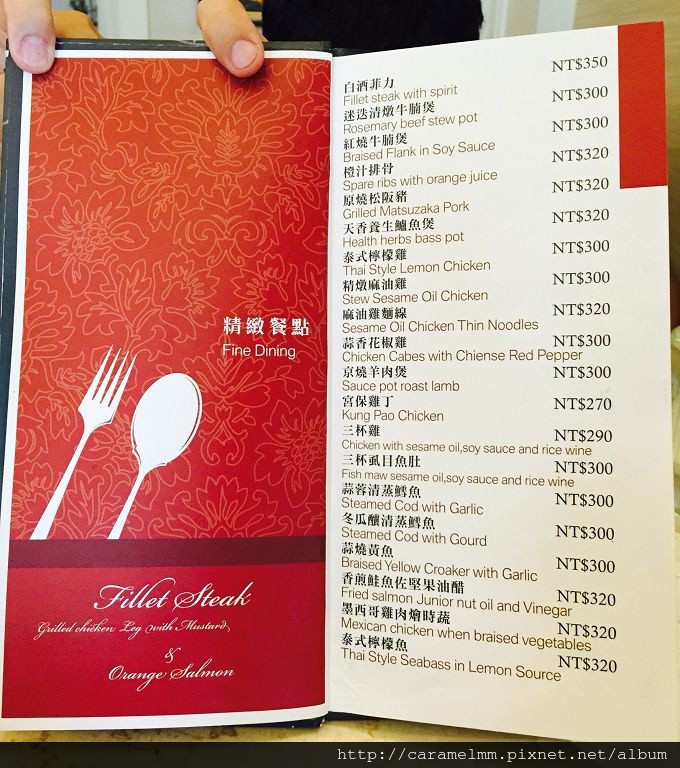 精緻餐點
Fine Dining
Fillet Steak
Grilled chicken Leg with Mustard
&
Orange Salmon
白酒菲力 NT$350
Fillet steak with spirit
迷迭清燉牛腩煲 NT$300
Rosemary beef stew pot
紅燒牛腩煲 NT$300
Braised Flank in Soy Sauce
橙汁排骨 NT$320
Spare ribs with orange juice
原燒松阪豬 NT$320
Grilled Matsuzaka Pork
天香養生鱸魚煲 NT$320
Health herbs bass pot
泰式檸檬雞 NT$300
Thai Style Lemon Chicken
精燉麻油雞 NT$300
Stew Sesame Oil Chicken
麻油雞麵線 NT$320
Sesame Oil Chicken Thin Noodles
蒜香花椒雞 NT$300
Chicken Cabes with Chiense Red Pepper
京燒羊肉煲 NT$300
Sauce pot roast lamb
宮保雞丁 NT$270
Kung Pao Chicken
三杯雞 NT$290
Chicken with sesame oil,soy sauce and rice wine
三杯虱目魚肚 NT$300
Fish maw sesame oil,soy sauce and rice wine
蒜蓉清蒸鱈魚 NT$300
Steamed Cod with Garlic
冬瓜釀清蒸鱈魚 NT$300
Steamed Cod with Gourd
蒜燒黃魚 NT$300
Braised Yellow Croaker with Garlic
香煎鮭魚佐堅果油醋 NT$320
Fried salmon Junior nut oil and Vinegar
墨西哥雞肉燴時蔬 NT$320
Mexican chicken when braised vegetables
泰式檸檬魚 NT$320
Thai Style Seabass in Lemon Source
http://caramelmm.pixnet.net/album